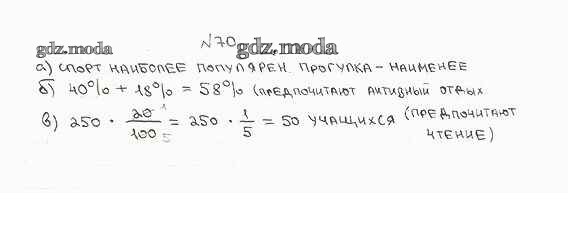 №70
gdz.moda gdz.moda
а) спорт наиболее популярен. прогулка – наименее
б) 40% + 18% = 58% (предпочитают активный отдых
в) 250 · 20/100 = 250 · 1/5 = 50 учащихся (предпочитают
чтение)